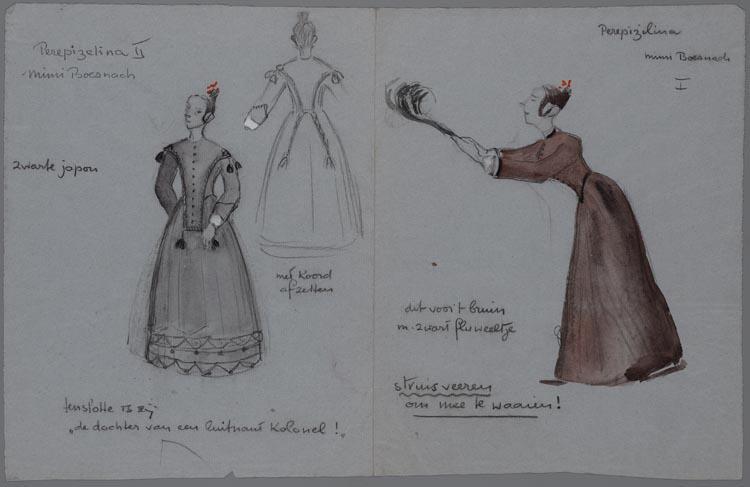 Perepizelina II
mimi Boesnach
zwarte japon
met koord
afzetten
tenslotte is zij
"de dochter van een luitnant Kolonel !"
Perepizelina
mimi Boesnach
I
dit voor 't bruin
m. zwart fluweeltje
struisveeren
om mee te waaien!